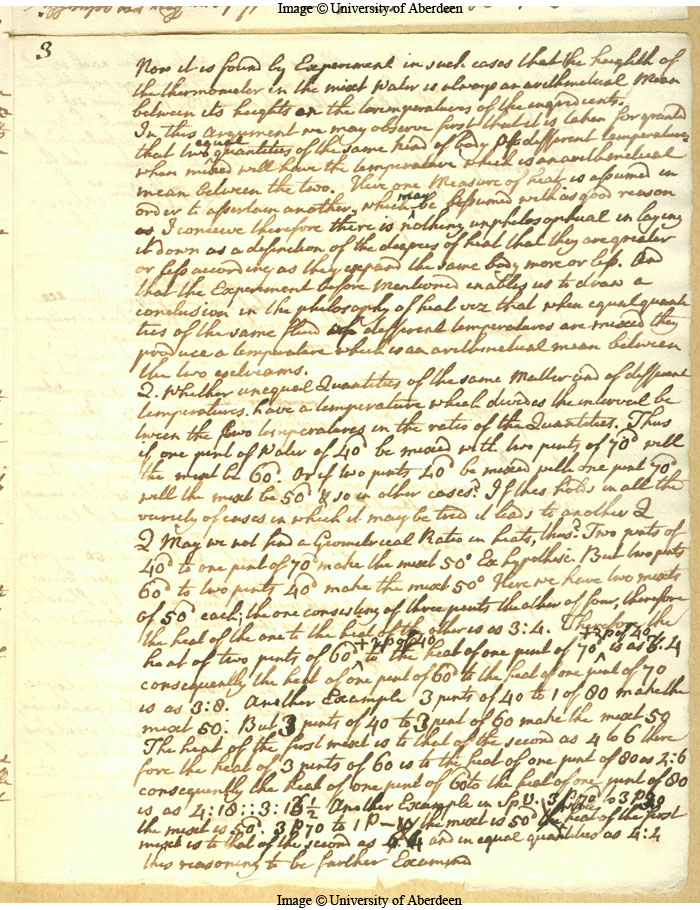 Image © University of Aberdeen
3
Now it is found by Experiment in such cases that the heighth of
the thermometer in the mixt Water is always an arithmetical Mean
between its heights in the temperatures of the ingredients.
In this argument we may observe first that it is taken for granted
that two equal quantities of the same kind of body of different temperatures
when mixed will have the temperature which is an arithmetical
mean between the two. Here one Measure of heat is assumed in
order to assertain another, which may be assumed with as good reason
as I conceive therefore there is nothing unphilosophical in laying
it down as a definition of the degrees of heat that they are greater
or less according as they expand the same body more or less. And
that the Experiment before mentioned enables us to draw a
conclusion in the philosophy of heat viz that when equal quanti
ties of the same fluid of different temperatures are mixed they
produce a temperature which is an arithmetical mean between
the two extreams.
Q. Whether unequal Quantities of the same Matter and of different
temperatures. have a temperature which divides the interval be
tween the two temperatures in the ratio of the Quantities. Thus
if one pint of Water of 40d be mixed with two pints of 70d will
the mixt be 60d. Or if two pints 40d be mixed with one pint 70d
will the mixt be 50d & so in other cases? If this holds in all the
variety of cases in which it may be tried it leads to another Q
Q May we not find a Geometrical Ratio in heats, thus? Two pints of
40d to one pint of 70d make the mixt 50° Ex hypothesi. But two pints
60d to two pints 40d make the mixt 50° Here we have two mixts
of 50d each, the one consisting of three pints the other of four, therefore
the heat of the one to the heat of the other is as 3:4. Therefore the
heat of two pints of 60d +2p of 40 to the heat of one pint of 70d +2p of 40 is as 4
consequently the heat of one pint of 60d to the heat of one pint of 70
is as 3:8. Another Example 3 pints of 40 to 1 of 80 make the
mixt 50: But 3 pints of 40 to 3 pint of 60 make the mixt 50
The heat of the first mixt is to that of the second as 4 to 6 there
fore the heat of 3 pints of 60 is to the heat of one pint of 80 as 2:6
consequently the heat of one pint of 60 to the heat of one pint of 80
is as 4:18::3: Another Example in 3 p 70 to 3 p
the mixt is 50d. 3 p 70 to 1 p the mixt is 50d the heat of the first
mixt is to that of the second as and in equal quantities as 4:4
this reasoning to be farther Examined
Image © University of Aberdeen